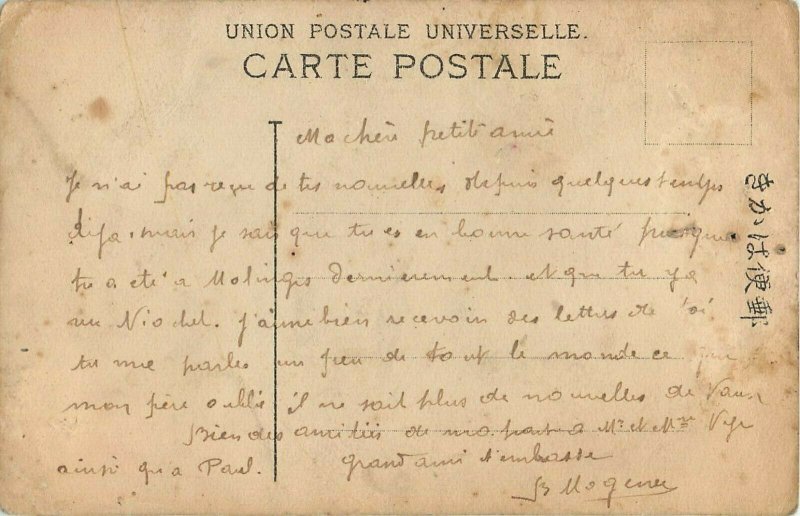 UNION POSTALE UNIVERSELLE.
CARTE POSTALE
Ma chère petite amie
Je n'ai pas reçu de tes nouvelles depuis quelques temps
déja. mais je sais que tu es en bonne santé puisque
tu a eté a Molinges dernierement et que tu y a
un Niochel. j'aime bien recevoir des lettres de toi
tu me parles un peu de tout le monde ce que
mon père oublie il ne sait plus de nouvelles de Vaux
Bien des amitiés de ma part a Mr et Mme
ainsi qu'a Paul. grand ami t'embrasse
B
きかは便郵